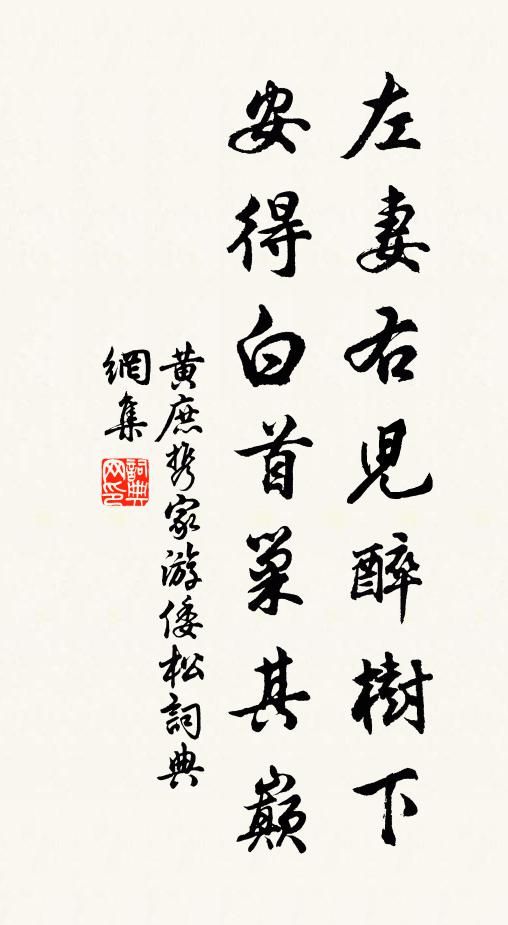 左妻右兒醉樹下
安得白首巢其巔
黃庶携家游倭松詞典
網集
詞典網印